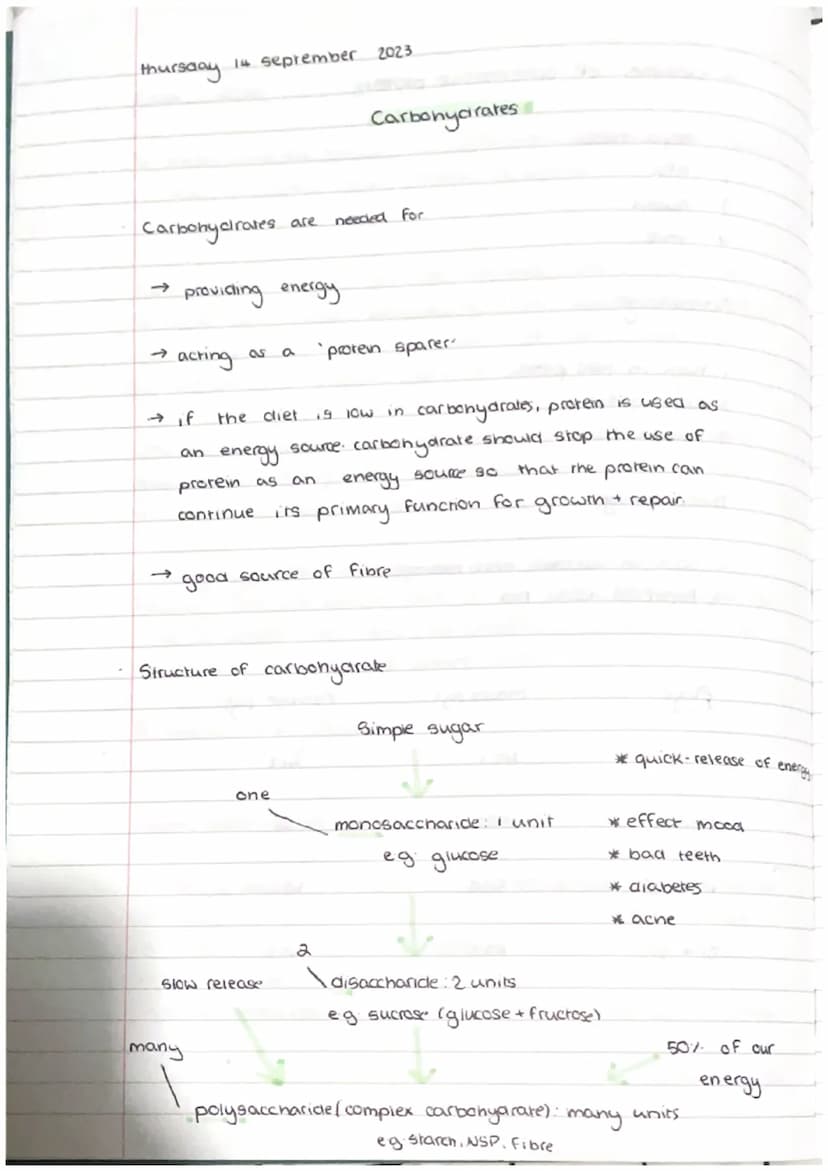 Thursday 14 september 2023
Carbohydrates
Carbohydrates are needed for
→ providing energy
→ acting as a 'protein sparer'
→ if the diet is low in carbohydrates, protein is used as
an energy source. carbohydrate should stop the use of
protein as an energy source so that the protein can
continue its primary function for growth + repair
→ good source of fibre
Structure of carbohydrate
Simple sugar
* quick-release of energy
one
monosaccharide: 1 unit
* effect mood
eg. glucose
* bad teeth
* diabetes
* acne
2
slow release
disaccharide: 2 units
eg. sucrose (glucose + fructose)
many
50% of our
energy
polysaccharide (complex carbohydrate): many units
eg. starch, NSP, fibre